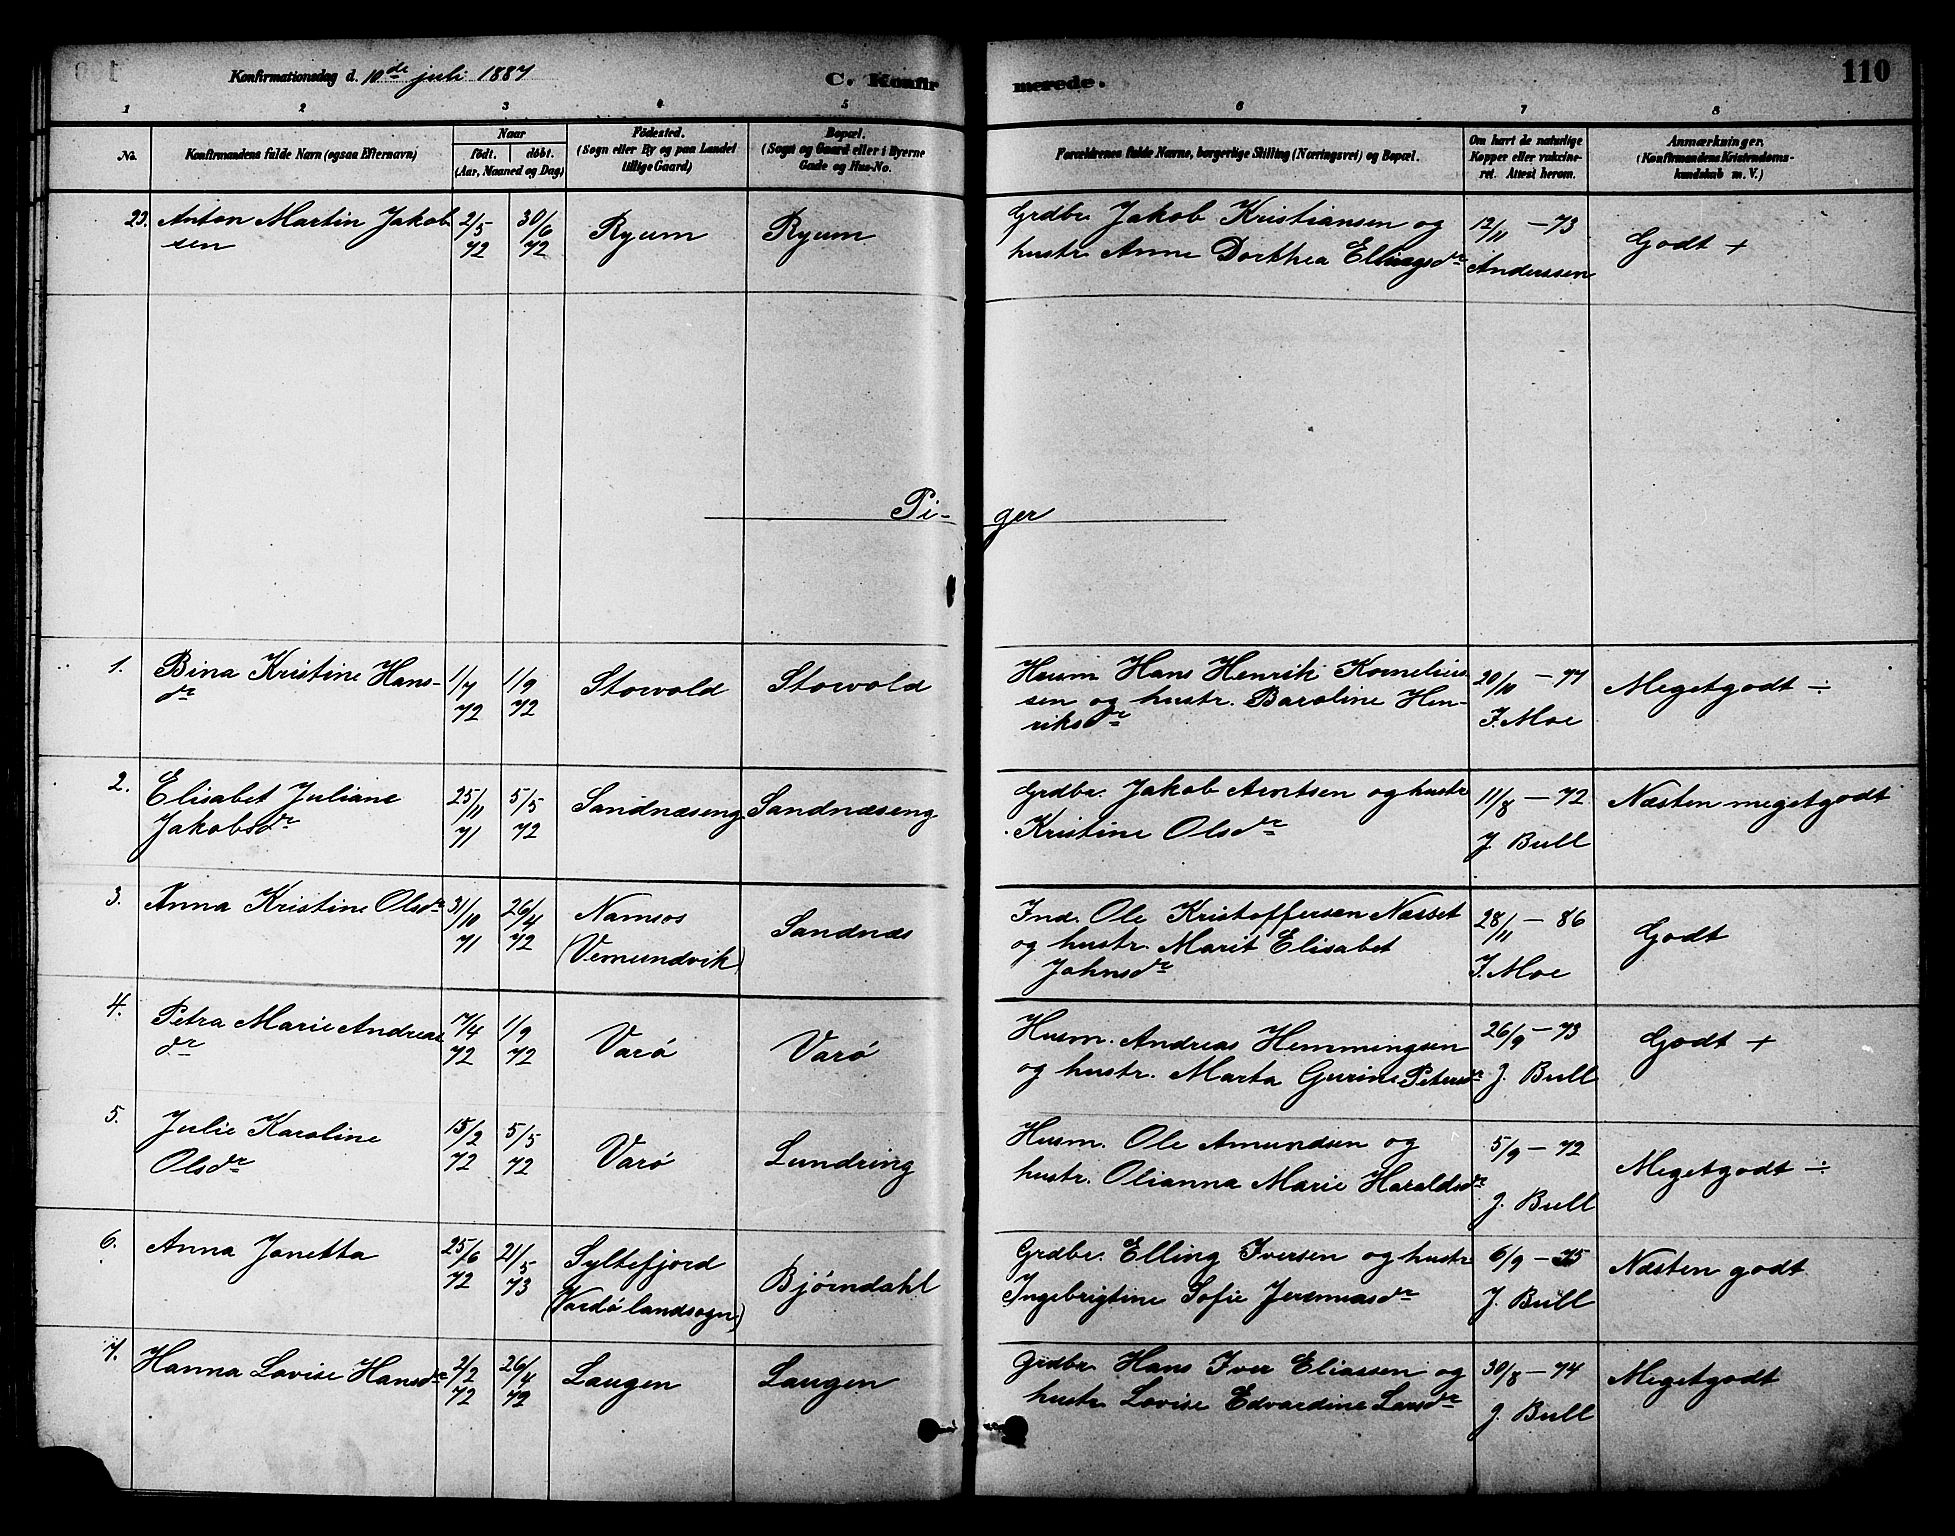 Konfirmationsdag d. 10de juli 1887
C. Konfirmerede.
110
1 2 3 4 5 6 7 8
No.
Konfirmandens fulde Navn (ogsaa Efternavn)
Naar
födt. döbt.
(Aar, Maaned og Dag)
Födested.
(Sogn eller By og paa Landet
tillige Gaard)
Bopæl.
(Sogn og Gaard eller i Byerne
Gade og Hus-No.
Forældrenes fulde Navne, borgerlige Stilling (Næringsvei) og Bopæl.
Om havt de naturlige
Kopper eller vakcine-
ret. Attest herom.
Anmærkninger.
(Konfirmandens Kristendoms-
kundskab m. V.)
23. Anton Martin Jakob
sen
2/5 72
30/6 72
Ryum
Ryum
Grdbr. Jakob Kristiansen og
hustr. Anne Dorthea Ellingsdr
12/11 - 73
Anderssen
Godt +
Pi- ger
1. Bina Kristine Hans-
dr
1/7 72
1/9 72
Stovold
Stovold
Husm Hans Henrik Kornelius
sen og hustr. Baroline Hen-
riksdr
20/10 - 77
J. Moe
Megetgodt ÷
2. Elisabet Juliane
Jakobsdr
25/11 71
5/5 72
Sandnæseng
Sandnæseng
Grdbr. Jakob Arntsen og hustr
Kristine Olsdr
11/8 - 72
J. Bull
Næsten megetgodt
3. Anna Kristine Olsdr
31/10 71
26/4 72
Namsos
(Vemundvik)
Sandnæs
Ind. Ole Kristoffersen Næsset
og hustr. Marit Elisabet
Johnsdr
28/11 - 86
J. Moe
Godt
4. Petra Marie Andreas
dr
17/4 72
1/9 72
Varø
Varø
Husm. Andreas Hemmingsen
og hustr. Marta Gurine Petersdr
26/9 - 73
J. Bull
Godt +
5. Julie Karoline
Olsdr
15/2 72
5/5 72
Varø
Lundring
Husm. Ole Amundsen og
hustr. Olianna Marie Haraldsdr
5/9 - 72
J. Bull
Megetgodt ÷
6. Anna Janetta
25/6 72
21/5 73
Syltefjord
(Vardø landsogn)
Bjørndahl
Grdbr. Elling Iversen og hustr
Ingebrigtine Sofie Jeremiasdr
6/9 - 75
J. Bull
Næsten godt
7. Hanna Lovise Hansdr
2/2 72
26/4 72
Laugen
Laugen
Grdbr. Hans Iver Eliassen og
hustr. Lovise Edvardine Larsdr
30/8 - 74
J. Bull
Megetgodt